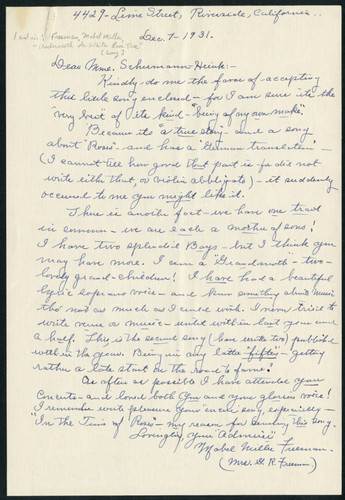 4429 - Lime Street, Riverside, California..
Freeman, Mabel Miller
[song]
Dec. 7 - 1931.
Dear Mme. Schumann-Heink:-
Kindly do me the favor of accepting
this little song enclosed - for I am sure its the
"very best of its kind" "being of my own make".
Because its "a true story - and a song
about "Roses" - and has a "German translation" -
(I cannot tell how good that part is - for did not
write either that, or violin obbligato) - it suddenly
occured to me you might like it.
There is another fact - we have one treat
in common - we are each a mother of sons!
I have two splendid Boys - but I think you
may have more. I am a "Grandmoth - two -
lovely grand-children! I have had a beautiful
lyric soprano voice - and know something about music
tho' not as much as I could wish. I never tried to
write verse or music - until with in last year and
a half. This is the second song (have written two) published
with in the year. Being in my latter "fifties" - getting
rather a late start on the road to fame!
As often as possible I have attended your
Concerts - and loved both you and your glorious voice!
I remember with pleasure your encore song, especially -
"In the Time of Roses - my reason for sending this song.
Lovingly, your "Admirer"
Mabel Miller Freeman.
(Mrs. G. R. Freeman)